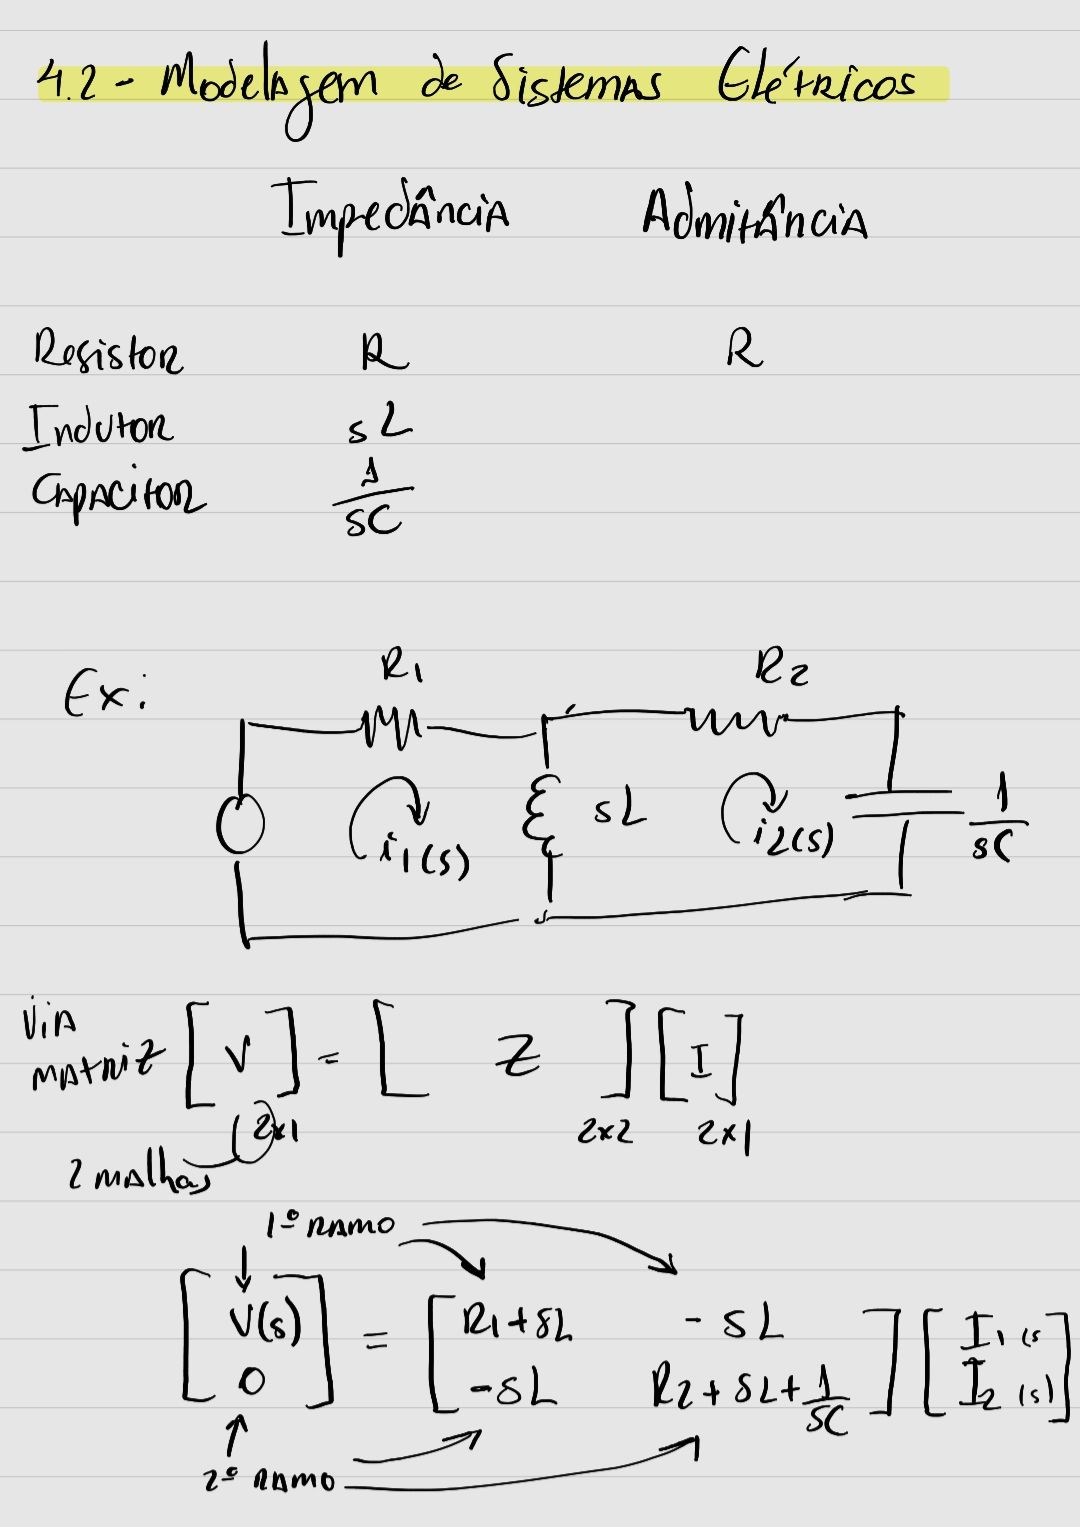 4.2 - Modelagem de Sistemas Elétricos
Impedância Admitância
Resistor R R
Indutor sL
Capacitor 1/sC
Ex:
R1 R2
i1(s) sL i2(s) 1/sC
Via matriz [V] = [Z] [I]
2x1 2x2 2x1
2 malhas
1º ramo
[V(s)] = [R1+sL - sL] [I1(s]
[0] [-sL R2+sL+1/sC] [I2(s)]
2º ramo